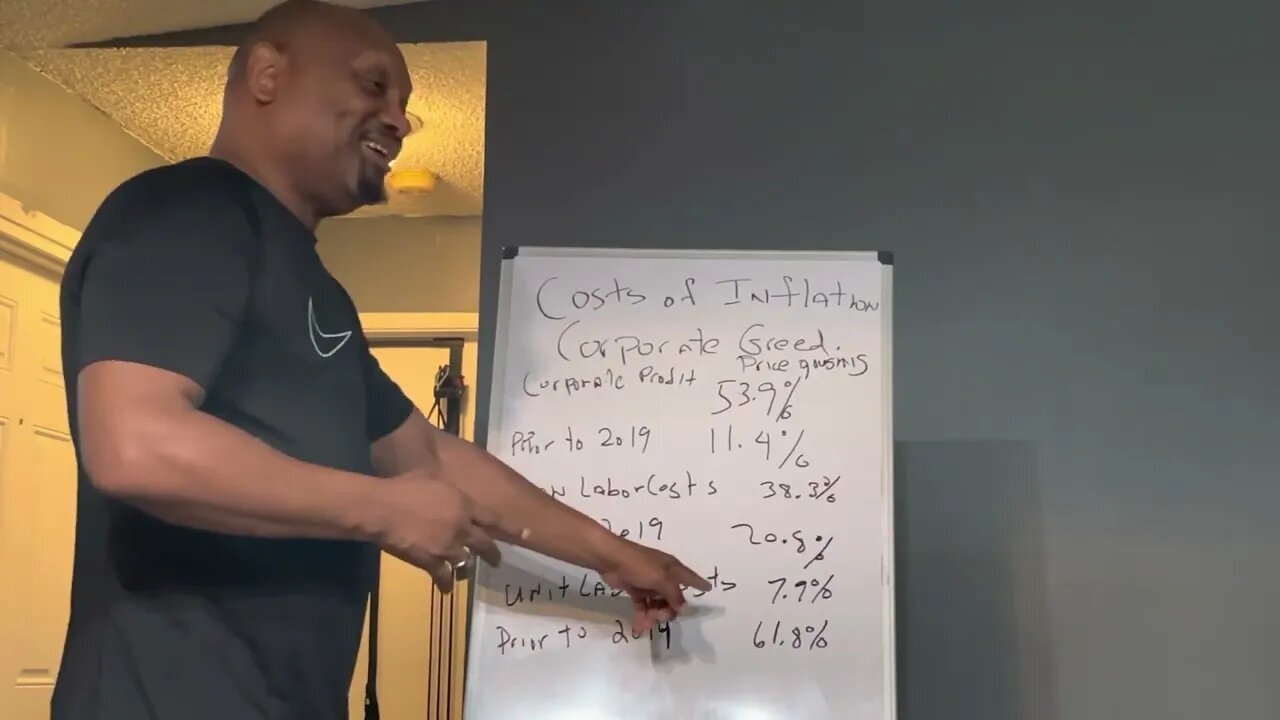 Costs of INflation
Corporate Greed.
Price
Corporate Profit 53.9%
Prior to 2019 11.4%
Labor Costs 38.3%
2019 20.8%
UNit 7.9%
Prior to 2019 61.8%